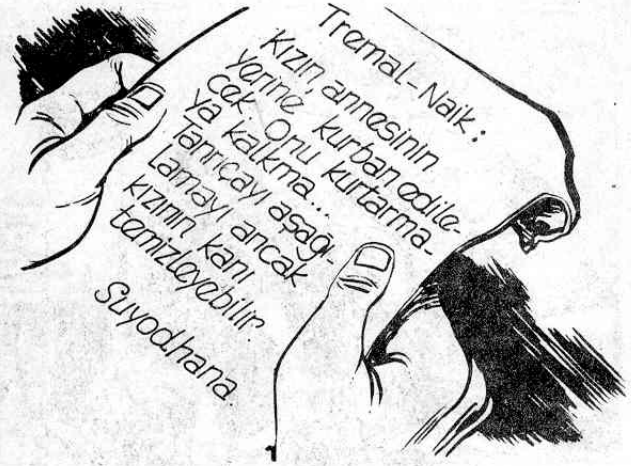 Tremal-Naik:
Kızın, annesinin
yerine kurban edile-
cek. Onu kurtarma-
ya kalkma...
Tanrıçayı aşağı-
lamayı ancak
kızının kanı
temizleyebilir
Suyodhana